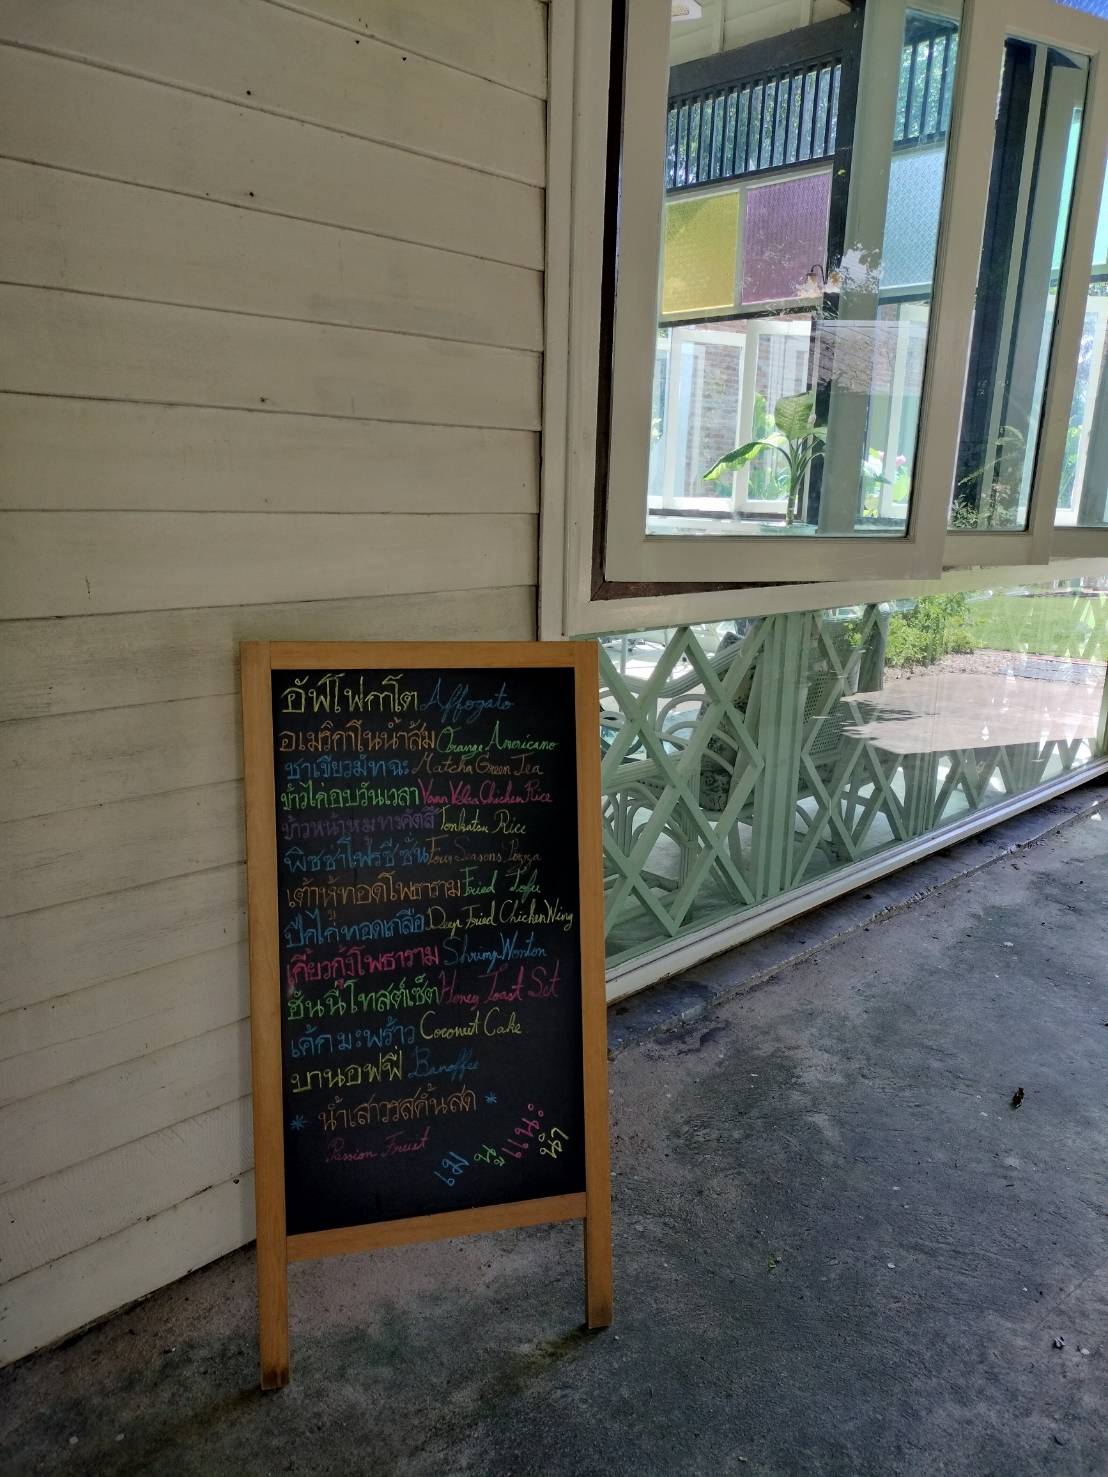 อัฟโฟกาโต Affogato
อเมริกาโนน้ำส้ม Orange Americano
ชาเขียวมัทฉะ Matcha Green Tea
ข้าวไก่อบวันเวลา Vaan Velaa Chicken Rice
ข้าวหน้าหมูทงคัตสึ Tonkatsu Rice
พิซซ่าโฟร์ซีซั่น Four Seasons Pizza
เต้าหู้ทอดโพธาราม Fried Tofu
ปีกไก่ทอดเกลือ Deep Fried Chicken Wing
เกี๊ยวกุ้งโพธาราม Shrimp Wonton
ฮันนี่โทสต์เซ็ต Honey Toast Set
เค้กมะพร้าว Coconut Cake
บานอฟฟี่ Banoffee
* น้ำเสาวรสคั้นสด *
Passion Fruit
เมนูแนะนำ